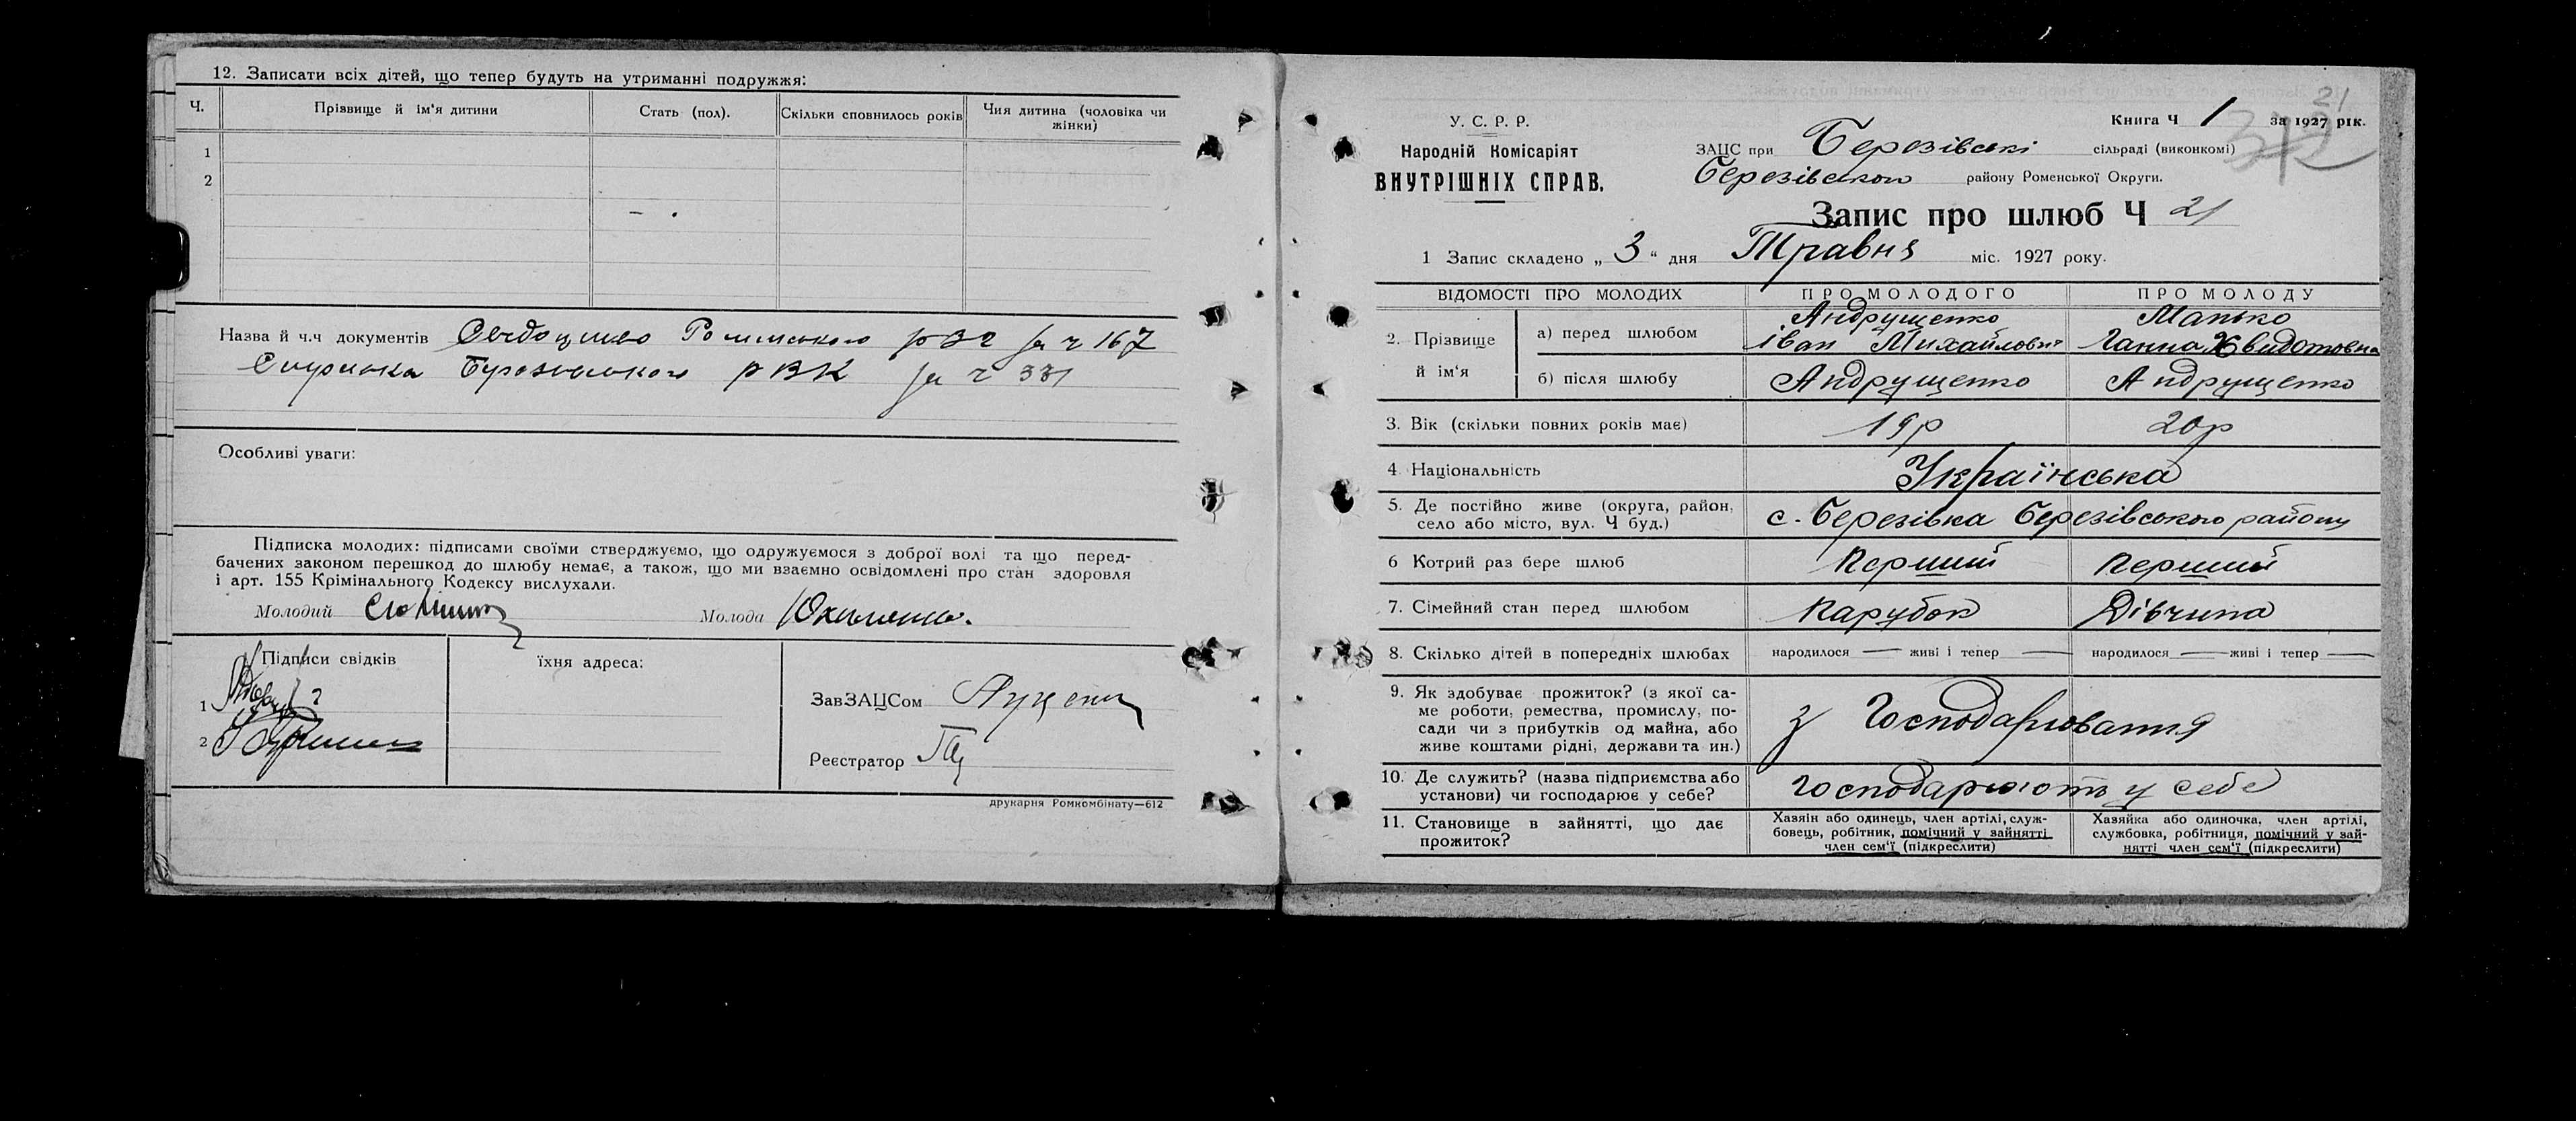 12. Записати всіх дітей, що тепер будуть на утриманні подружжя:
Ч.
Прізвище й ім'я дитини
Стать (пол).
Скільки сповнилось років
Чия дитина (чоловіка чи
жінки)
1
2
Назва й ч.ч документів
р за ч 167
Березівського РВК за ч 331
Особливі уваги:
Підписка молодих: підписами своїми стверджуємо, що одружуємося з доброї волі та що перед-
бачених законом перешкод до шлюбу немає, а також, що ми взаємно освідомлені про стан здоровля
і арт. 155 Крімінального Кодексу вислухали.
Молодий
Молода
Підписи свідків
їхня адреса:
1
2
ЗавЗАЦСом
Реєстратор
друкарня Ромкомбінату—612
21
Книга Ч 1 за 1927 рік.
372
У. С. Р. Р.
Народній Комісаріят
ВНУТРІШНІХ СПРАВ.
ЗАЦС при Березівскі сільраді (виконкомі)
Березівского району Роменської Округи.
Запис про шлюб Ч 21
1 Запис складено „ 3 “ дня Травня міс. 1927 року.
ВІДОМОСТІ ПРО МОЛОДИХ
ПРО МОЛОДОГО
ПРО МОЛОДУ
2. Прізвище й ім'я
а) перед шлюбом
Андрущенко
Іван Михайлович
Манько
Ганна Хвидотовна
б) після шлюбу
Андрущенко
Андрущенко
3. Вік (скільки повних років має)
19р
20р
4 Національність
Українська
5. Де постійно живе (округа, район,
село або місто, вул. Ч буд.)
с. Березівка Березівського району
6 Котрий раз бере шлюб
Перший
Перший
7. Сімейний стан перед шлюбом
Парубок
Дівчина
8. Скілько дітей в попередніх шлюбах
народилося — живі і тепер —
народилося — живі і тепер —
9. Як здобуває прожиток? (з якої са-
ме роботи, ремества, промислу, по-
сади чи з прибутків од майна, або
живе коштами рідні, держави та ин.)
З Господарювання
10. Де служить? (назва підприємства або
установи) чи господарює у себе?
Господарюють у себе
11. Становище в зайнятті, що дає
прожиток?
Хазяїн або одинець, член артілі, служ-
бовець, робітник, помічний у зайнятті
член сем'ї (підкреслити)
Хазяйка або одиночка, член артілі,
службовка, робітниця, помічний у зай-
нятті член сем'ї (підкреслити)